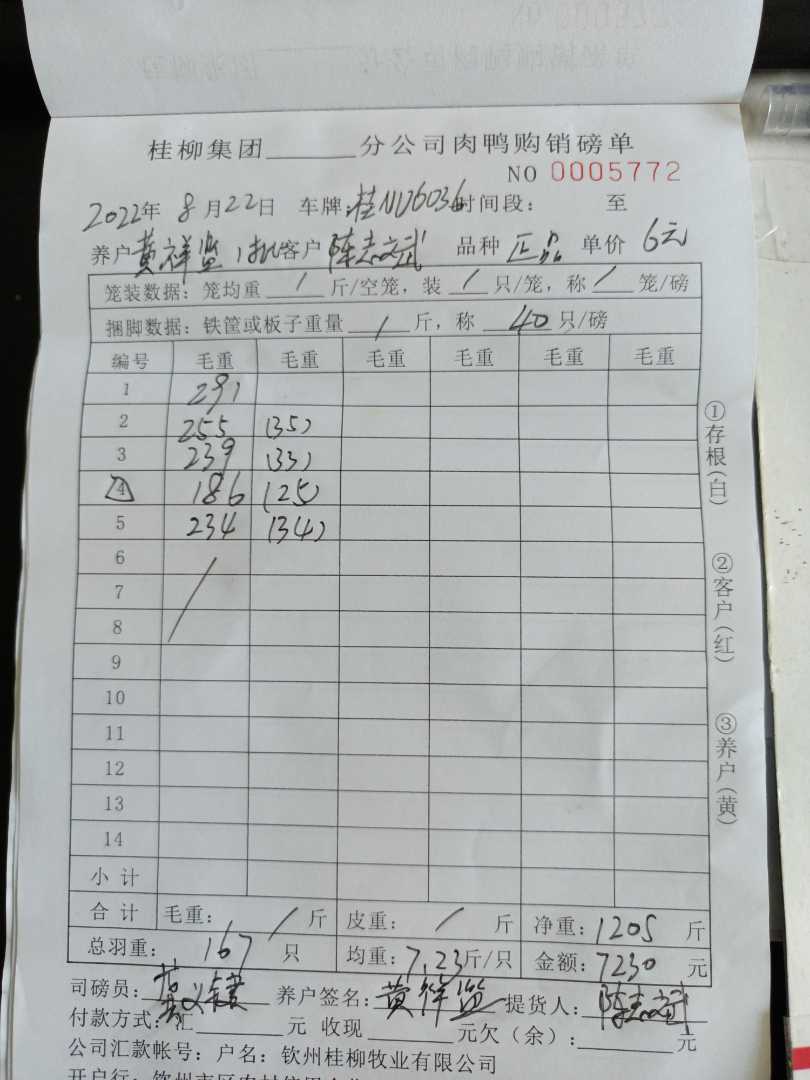 桂柳集团______分公司肉鸭购销磅单
NO 0005772
2022年 8月22日 车牌:桂NU6036时间段: 至
养户黄祥监 1批客户陈志斌 品种 正品 单价 6元
笼装数据:笼均重 / 斤/空笼,装 / 只/笼,称 / 笼/磅
捆脚数据:铁筐或板子重量 / 斤,称 40 只/磅
编号 毛重 毛重 毛重 毛重 毛重 毛重
1 291
2 255 (35)
3 239 (33)
4 186 (25)
5 234 (34)
6
7
8
9
10
11
12
13
14
小计
合计 毛重: / 斤 皮重: / 斤 净重:1205 斤
总羽重: 167 只 均重:7.23斤/只 金额:7230 元
司磅员: 养户签名:黄祥监 提货人:陈志斌
付款方式:汇______元 收现______元欠(余):______元
公司汇款帐号:户名:钦州桂柳牧业有限公司
①存根(白)
②客户(红)
③养户(黄)